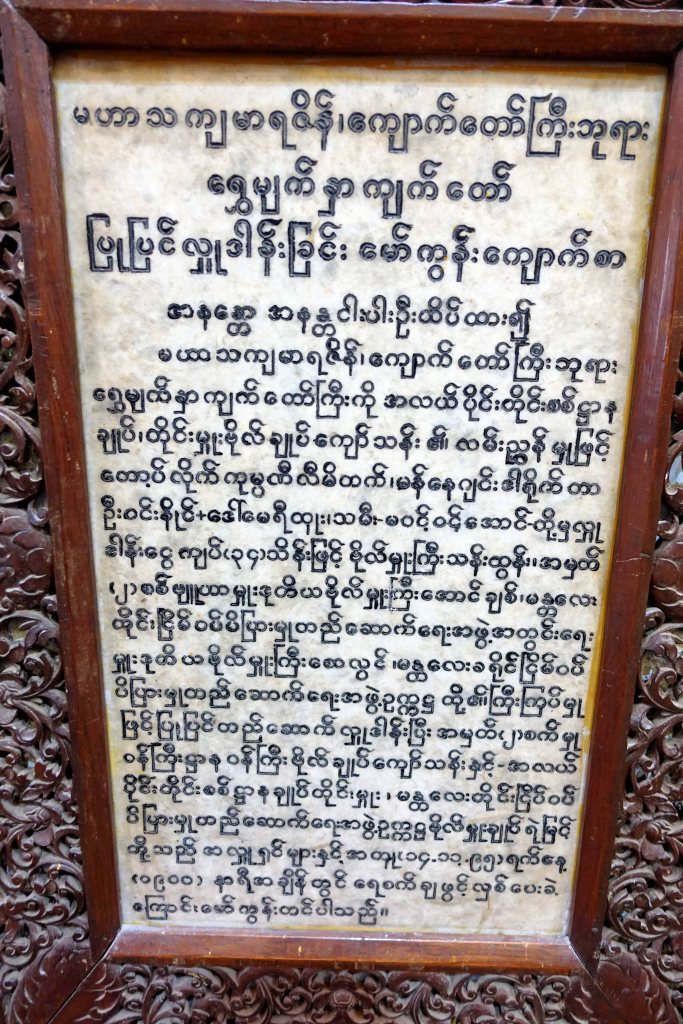 မဟာသကျမာရဇိန်၊ကျောက်တော်ကြီးဘုရား
ရွှေမျက်နှာကျက်တော်
ပြုပြင်လှူဒါန်းခြင်း မော်ကွန်းကျောက်စာ
အနန္တော အနန္တငါးပါးဦးထိပ်ထား၍
မဟာသကျမာရဇိန်၊ကျောက်တော်ကြီးဘုရား
ရွှေမျက်နှာကျက်တော်ကြီးကို အလယ်ပိုင်းတိုင်းစစ်ဌာန
ချုပ်၊တိုင်းမှူးဗိုလ်ချုပ်ကျော်သန်း၏ လမ်းညွှန်မှုဖြင့်
တော့ပ်လိုက်ကုမ္ပဏီလီမိတက်၊မန်နေဂျင်းဒါရိုက်တာ
ဦးဝင်းနိုင်+ဒေါ်မေရီထူး၊သမီး-မဝင့်ဝင့်အောင်-တို့မှလှူ
ဒါန်းငွေကျပ်(၃၄)သိန်းဖြင့် ဗိုလ်မှူးကြီးသန်းထွန်း၊အမှတ်
(၂)စစ်ဗျူဟာမှူးဒုတိယဗိုလ်မှူးကြီးအောင်ချစ်၊မန္တလေး
တိုင်း၊ငြိမ်ဝပ်ပိပြားမှုတည်ဆောက်ရေးအဖွဲ့အတွင်းရေး
မှူးဒုတိယဗိုလ်မှူးကြီးစောလွင်၊မန္တလေးခရိုင်ငြိမ်ဝပ်
ပိပြားမှုတည်ဆောက်ရေးအဖွဲ့ဥက္ကဋ္ဌတို့၏ကြီးကြပ်မှု
ဖြင့်ပြုပြင်တည်ဆောက်လှူဒါန်းပြီးအမှတ်(၂)စက်မှု
ဝန်ကြီးဌာနဝန်ကြီးဗိုလ်ချုပ်ကျော်သန်းနှင့်-အလယ်
ပိုင်းတိုင်းစစ်ဌာနချုပ်တိုင်းမှူး၊မန္တလေးတိုင်းငြိမ်ဝပ်
ပိပြားမှုတည်ဆောက်ရေးအဖွဲ့ဥက္ကဋ္ဌဗိုလ်မှူးချုပ်ရဲမြင့်
တို့သည်အလှူရှင်များနှင့်အတူ(၁၄.၁၁.၉၅)ရက်နေ့
(၀၉၀၀)နာရီအချိန်တွင် ရေစက်ချဖွင့်လှစ်ပေးခဲ့
ကြောင်းမော်ကွန်းတင်ပါသည်။